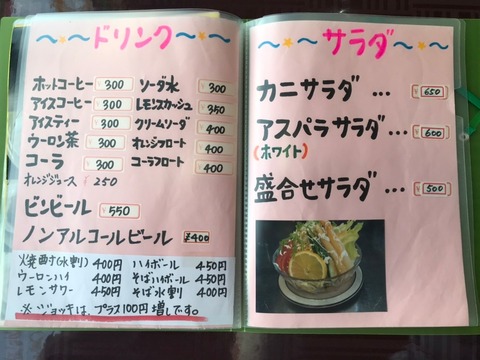 ～★～ドリンク～★～
ホットコーヒー ¥300 ソーダ水 ¥300
アイスコーヒー ¥300 レモンスカッシュ ¥350
アイスティー ¥300 クリームソーダ ¥400
ウーロン茶 ¥300 オレンジフロート ¥400
コーラ ¥300 コーラフロート ¥400
オレンジジュース ¥250
ビンビール ¥550
ノンアルコールビール ¥400
焼酎(水割) 400円 ハイボール 450円
ウーロンハイ 400円 そばハイボール 450円
レモンサワー 450円 そば水割 400円
※ジョッキは、プラス100円増しです。
～★～サラダ～★～
カニサラダ… ¥650
アスパラサラダ… ¥600
(ホワイト)
盛合せサラダ… ¥500